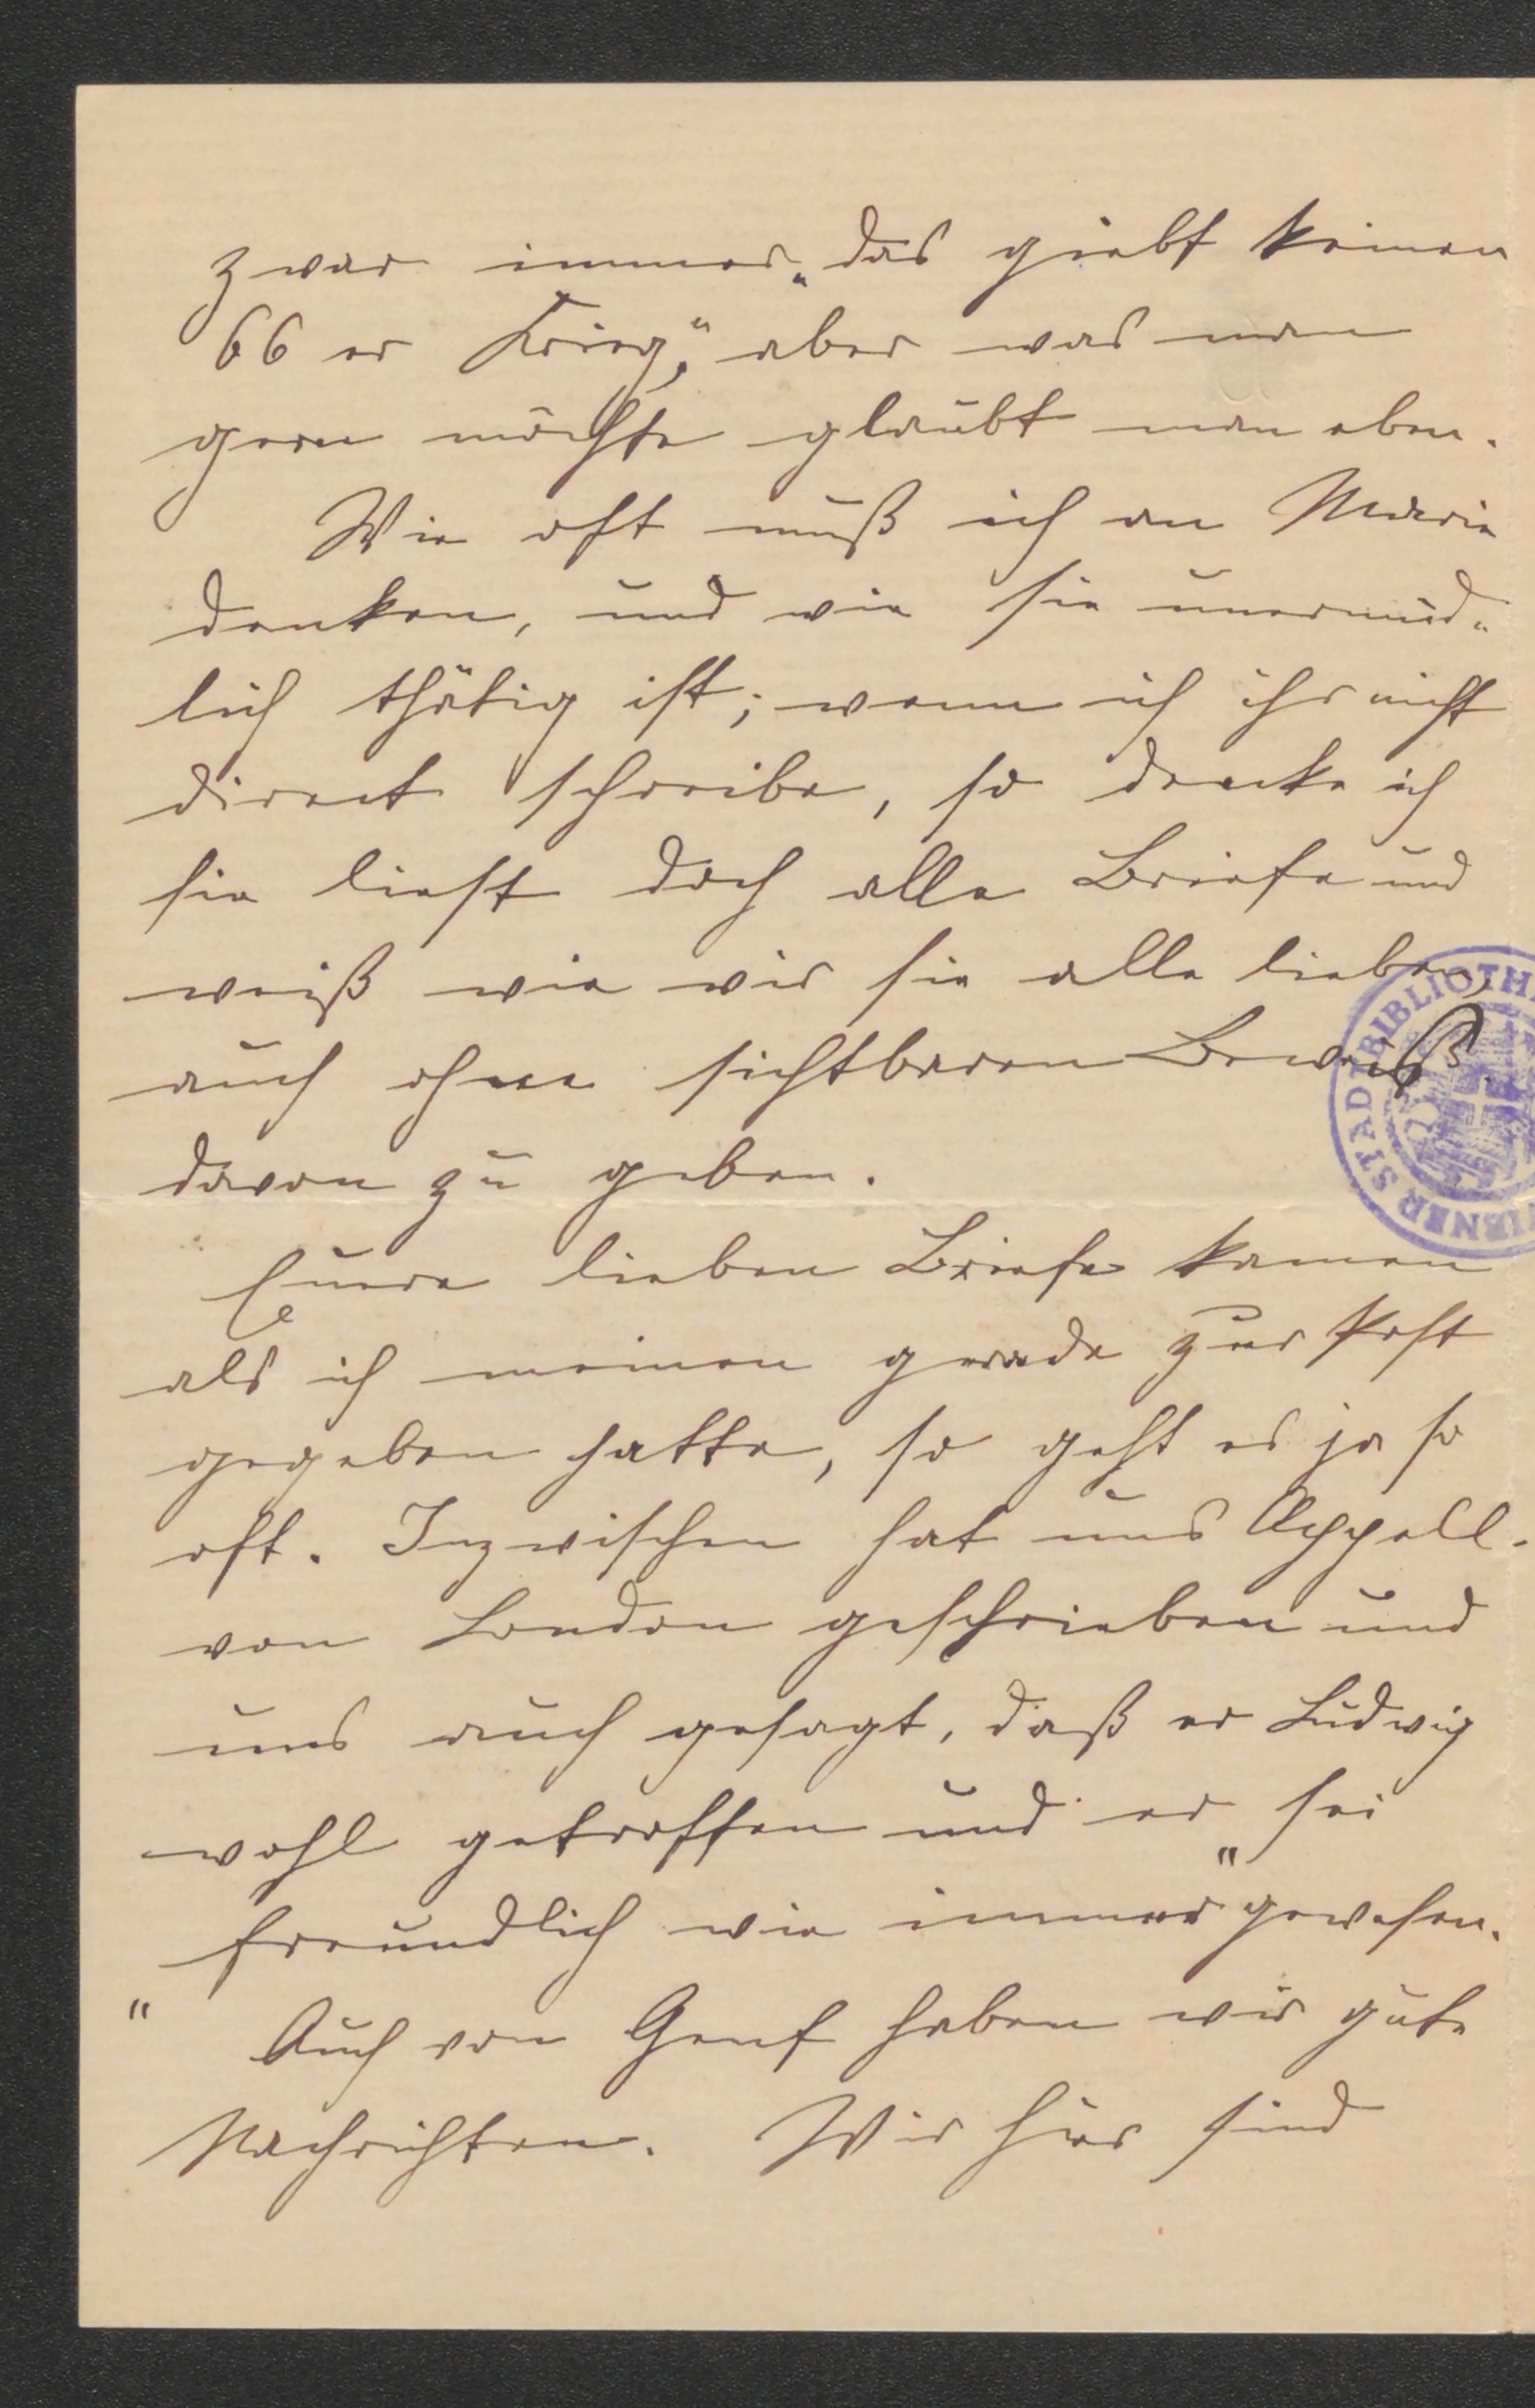 zwar immer „das giebt keinen
66 er Krieg“, aber was man
gern möchte glaubt man eben.
Wie oft muß ich an Marie
denken, und wie sie unermüd-
lich thätig ist; wenn ich ihr nicht
direct schreibe, so dencke ich
sie liest doch alle Briefe und
weiß wie wir sie alle lieben,
auch ohne sichtbaren Beweiß
davon zu geben.
Euere lieben Briefe kamen
als ich meinen gerade zur Post
gegeben hatte, so geht es ja so
oft. Inzwischen hat uns Appell.
von London geschrieben und
uns auch gesagt, daß er Ludwig
wohl getroffen und er „sei
freundlich wie immer“ gewesen.
" Auch von Genf haben wir gute
Nachrichten. Wir hier sind
WIENER STADTBIBLIOTH